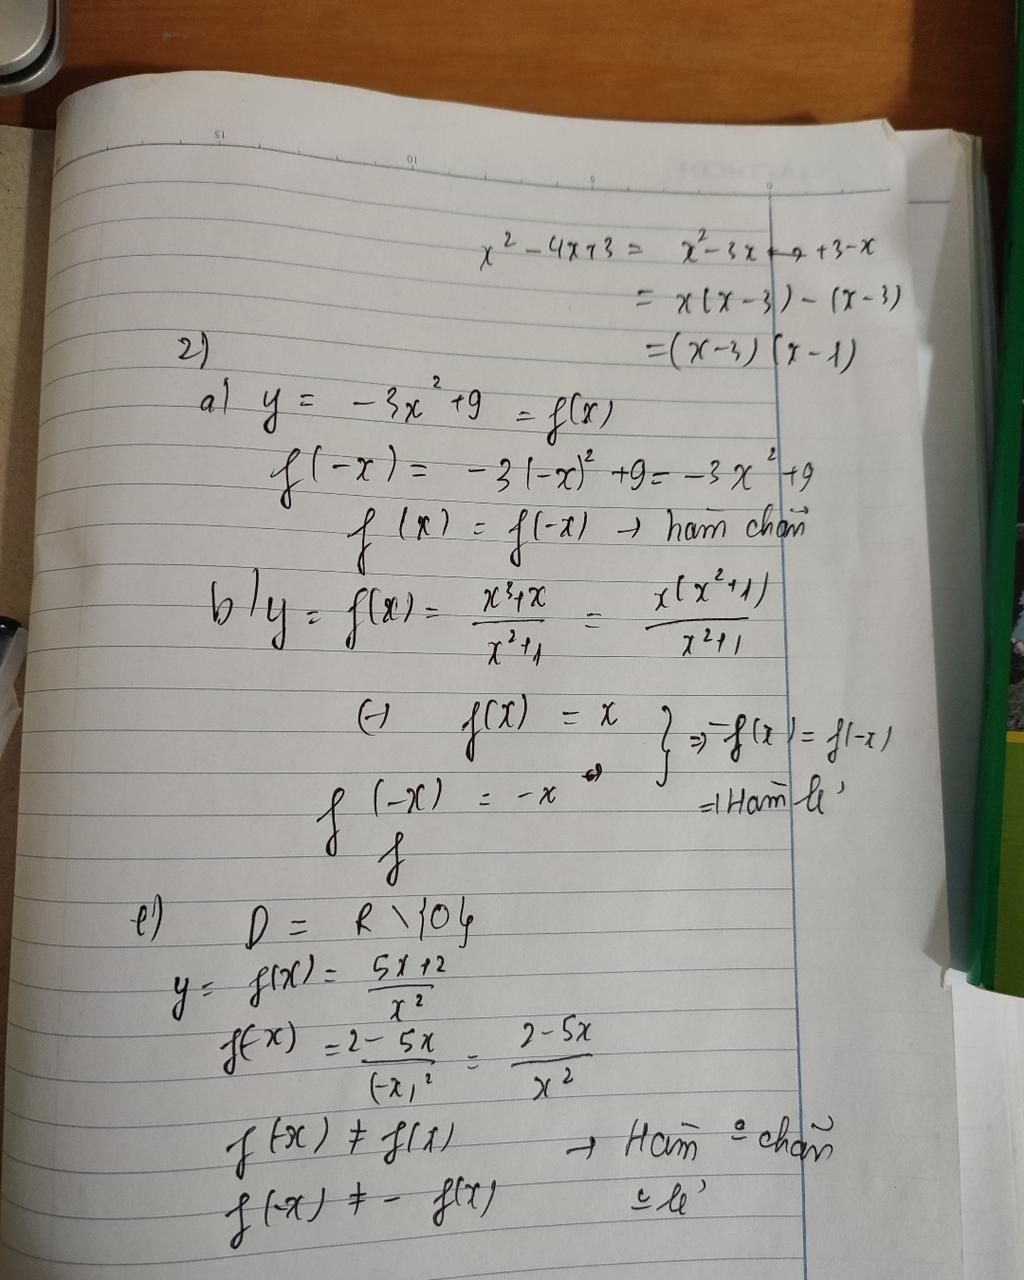 15 10 5 0
x² - 4x+3 = x² - 3x +3-x
= x(x-3) - (x-3)
= (x-3) (x-1)
2)
a) y = -3x² +9 = f(x)
f(-x) = -3(-x)² +9 = -3x² +9
f(x) = f(-x) → hàm chẵn
b) y = f(x) = \frac{x³+x}{x²+1} = \frac{x(x²+1)}{x²+1}
(→ f(x) = x } ⇒ -f(x) = f(-x)
f(-x) = -x ⇒ Hàm lẻ
f
e) D = R \ {0}
y = f(x) = \frac{5x+2}{x²}
f(-x) = \frac{2-5x}{(-x)²} = \frac{2-5x}{x²}
f(-x) ≠ f(x) → Hàm º chẵn
f(-x) ≠ - f(x) º lẻ